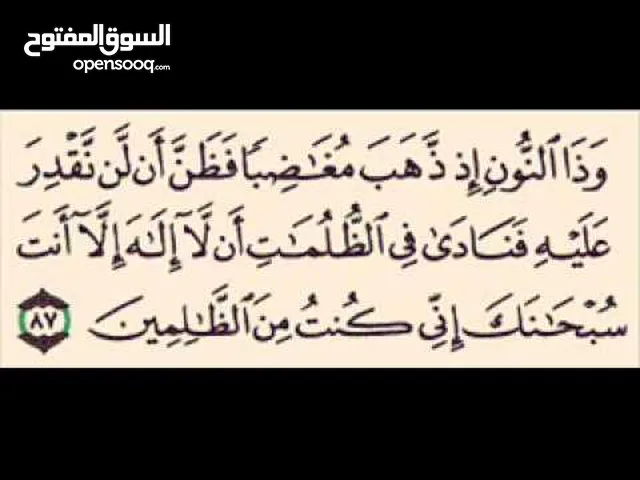 السوق المفتوح
opensooq.com
وَذَا ٱلنُّونِ إِذ ذَّهَبَ مُغَٰضِبٗا فَظَنَّ أَن لَّن نَّقۡدِرَ
عَلَيۡهِ فَنَادَىٰ فِي ٱلظُّلُمَٰتِ أَن لَّآ إِلَٰهَ إِلَّآ أَنتَ
سُبۡحَٰنَكَ إِنِّي كُنتُ مِنَ ٱلظَّٰلِمِينَ ٨٧